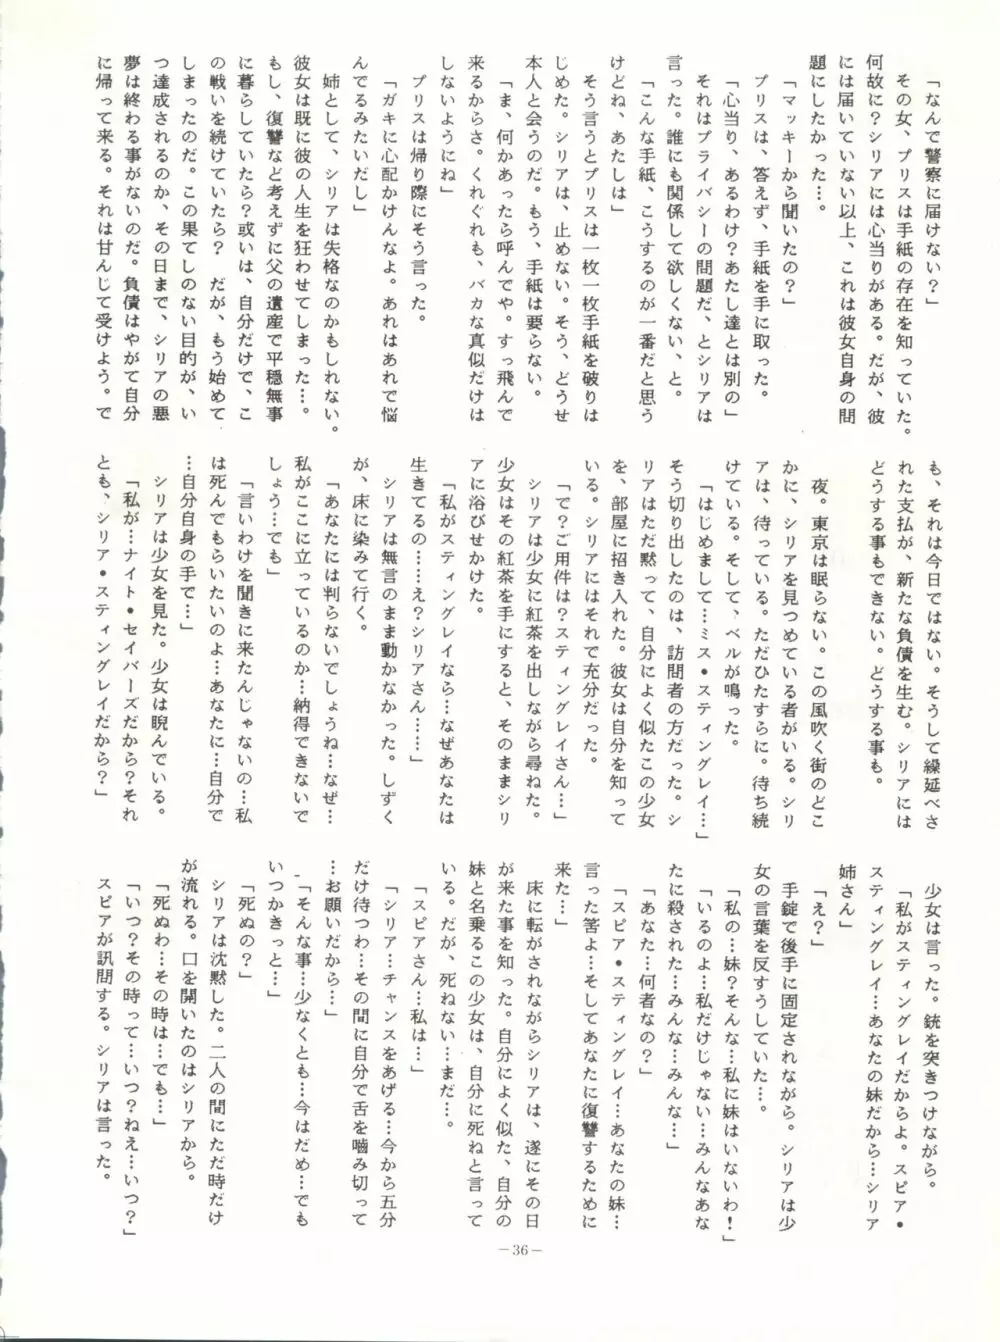 「なんで警察に届けない？」
その女、プリスは手紙の存在を知っていた。
何故に？シリアには心当りがある。だが、彼
には届いていない以上、これは彼女自身の問
題にしたかった…。
「マッキーから聞いたの？」
プリスは、答えず、手紙を手に取った。
「心当り、あるわけ？あたし達とは別の」
それはプライバシーの問題だ、とシリアは
言った。誰にも関係して欲しくない、と。
「こんな手紙、こうするのが一番だと思う
けどね、あたしは」
そう言うとプリスは一枚一枚手紙を破りは
じめた。シリアは、止めない。そう、どうせ
本人と会うのだ。もう、手紙は要らない。
「ま、何かあったら呼んでや。すっ飛んで
来るからさ。くれぐれも、バカな真似だけは
しないようにね」
プリスは帰り際にそう言った。
「ガキに心配かけんなよ。あれはあれで悩
んでるみたいだし」
姉として、シリアは失格なのかもしれない。
彼女は既に彼の人生を狂わせてしまった…。
もし、復讐など考えずに父の遺産で平穏無事
に暮らしていたら？或いは、自分だけで、こ
の戦いを続けていたら？　だが、もう始めて
しまったのだ。この果てしのない目的が、い
つ達成されるのか、その日まで、シリアの悪
夢は終わる事がないのだ。負債はやがて自分
に帰って来る。それは甘んじて受けよう。で
も、それは今日ではない。そうして繰延べさ
れた支払が、新たな負債を生む。シリアには
どうする事もできない。どうする事も。
夜。東京は眠らない。この風吹く街のどこ
かに、シリアを見つめている者がいる。シリ
アは、待っている。ただひたすらに。待ち続
けている。そして、ベルが鳴った。
「はじめまして…ミス・スティングレイ…」
そう切り出したのは、訪問者の方だった。シ
リアはただ黙って、自分によく似たこの少女
を、部屋に招き入れた。彼女は自分を知って
いる。シリアにはそれで充分だった。
「で？ご用件は？スティングレイさん…」
シリアは少女に紅茶を出しながら尋ねた。
少女はその紅茶を手にすると、そのままシリ
アに浴びせかけた。
「私がスティングレイなら…なぜあなたは
生きてるの……え？シリアさん……」
シリアは無言のまま動かなかった。しずく
が、床に染みて行く。
「あなたには判らないでしょうね…なぜ…
私がここに立っているのか…納得できないで
しょう…でも」
「言いわけを聞きに来たんじゃないの…私
は死んでもらいたいのよ…あなたに…自分で
…自分自身の手で…」
シリアは少女を見た。少女は睨んでいる。
「私が…ナイト・セイバーズだから？それ
とも、シリア・スティングレイだから？」
少女は言った。銃を突きつけながら。
「私がスティングレイだからよ。スピア・
スティングレイ…あなたの妹だから…シリア
姉さん」
「え？」
手錠で後手に固定されながら。シリアは少
女の言葉を反すうしていた…。
「私の…妹？そんな…私に妹はいないわ！」
「いるのよ…私だけじゃない…みんなあな
たに殺された…みんな…みんな…」
「あなた…何者なの？」
「スピア・スティングレイ…あなたの妹…
言った筈よ…そしてあなたに復讐するために
来た…」
床に転がされながらシリアは、遂にその日
が来た事を知った。自分によく似た、自分の
妹と名乗るこの少女は、自分に死ねと言って
いる。だが、死ねない…まだ…。
「スピアさん…私は…」
「シリア…チャンスをあげる…今から五分
だけ待つわ…その間に自分で舌を噛み切って
…お願いだから…」
「そんな事…少なくとも…今はだめ…でも
いつかきっと…」
「死ぬの？」
シリアは沈黙した。二人の間にただ時だけ
が流れる。口を開いたのはシリアから。
「死ぬわ…その時は…でも…」
「いつ？その時って…いつ？ねえ…いつ？」
スピアが訊問する。シリアは言った。
－36－